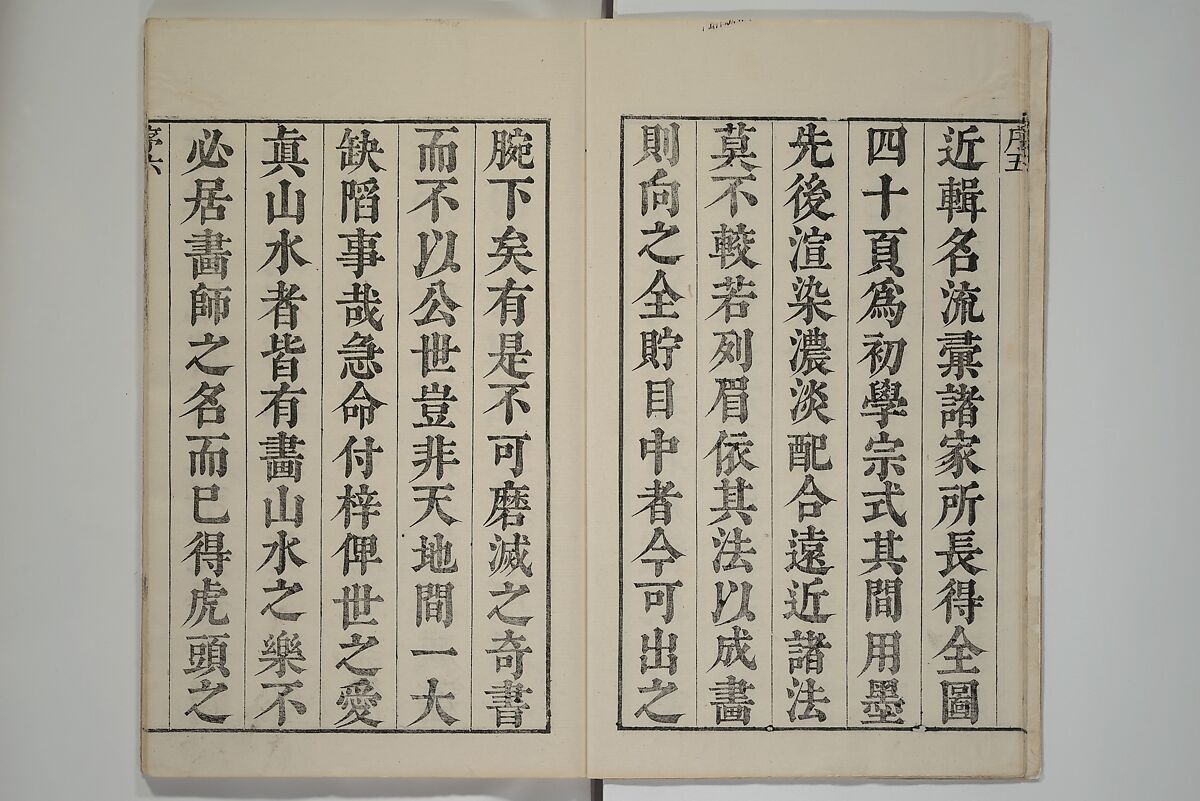 序五
近輯名流彙諸家所長得全圖
四十頁爲初學宗式其間用墨
先後渲染濃淡配合遠近諸法
莫不較若列眉依其法以成畫
則向之全貯目中者今可出之
腕下矣有是不可磨滅之奇書
而不以公世豈非天地間一大
缺䧟事哉急命付梓俾世之愛
眞山水者皆有畫山水之樂不
必居畫師之名而已得虎頭之
序六